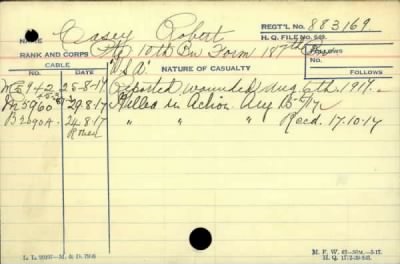 NAME Casey Robert REGT'L No. 883169.
H. Q. FILE No. 649
RANK AND CORPS Pte 10th Bn Form 187th Bn
CABLE
NO. DATE NATURE OF CASUALTY FOLLOWS FOLLOWS
25-8-17 reported wounded Aug 6th. 1917.
29.8.17 Killed in Action Aug 15-17.
B2090A. 24.8.17 " " " Recd. 17.10.17
Rouen
L. L. 20397—M. & D. 7956 M. F. W. 42—50M.—5-17.
H. Q. 1772-39-831.